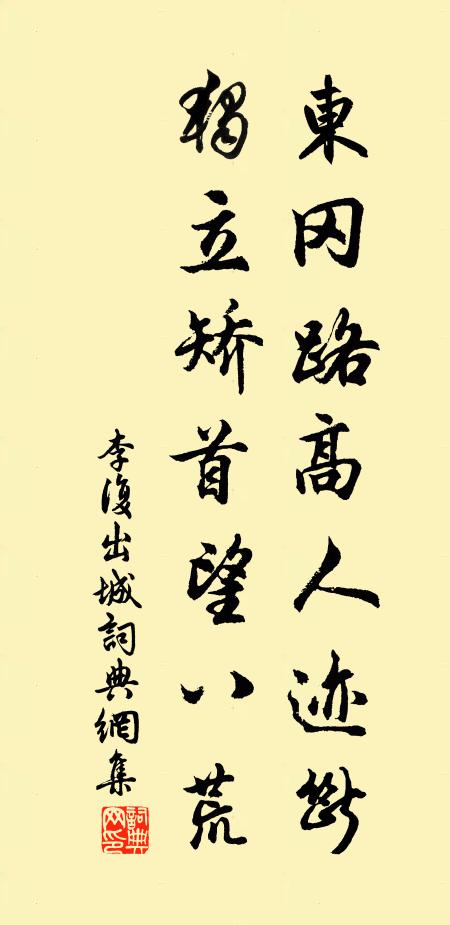 東冈路高人迹斷
獨立矫首望八荒
李復出城詞典網集
詞典網印